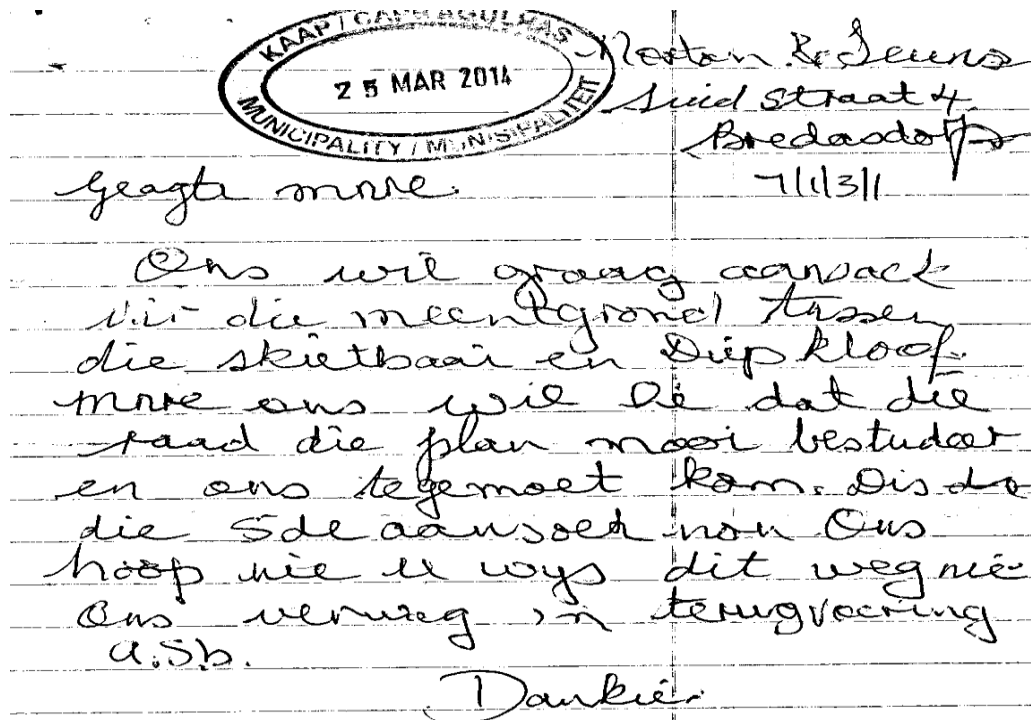 KAAP / CAPE AGULHAS
25 MAR 2014
MUNICIPALITY / MUNISIPALITEIT
Morton &
Suid Straat 4
Bredasdorp
7/1/3/1
Geagte mnre.
Ons wil graag aansoek
vir die meentgrond tussen
die skietbaai en Diepkloof.
mnre ons wil hê dat die
raad die plan mooi bestudeer
en ons tegemoet kom. Dis da
die 5de aansoek non Ons
hoop nie u wys dit weg nie
Ons verwag 'n terugvoering
a.Sb.
Dankie.